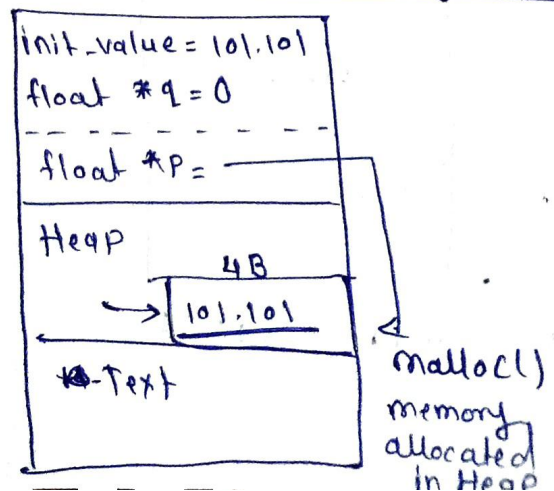 init_value = 101.101
float *q = 0
float *p =
Heap
4B
101.101
-Text
malloc()
memory
allocated
in Heap